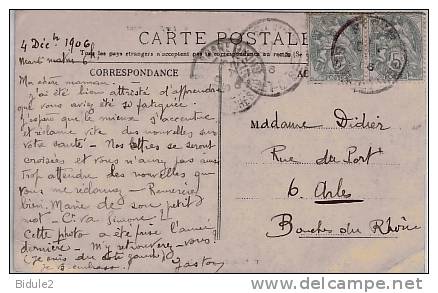 4 Déc^bre 1906
Mardi matin 9h
CARTE POSTALE
Tous les pays étrangers n'acceptent pas la correspondance au recto
CORRESPONDANCE
Ma chère maman,
j'ai été bien attristé d'apprendre
que vous aviez été si fatiguée.
J'espère que le mieux s'accentue
et réclame vite des nouvelles sur
votre santé - Nos lettres se seront
croisées et vous n'aurez pas aus
trop attendre des nouvelles que
vous me réclamez - Remerciez
bien Marie de son petit
mot - Ct va Simone !!
Cette photo a été prise l'année
dernière - M'y retrouvez-vous
(je suis du côté gauche)
Je vs embrasse
Gaston
Madame Didier
Rue du Port
6 Arles
Bouches du Rhône
© Bidule2
delcampe.net